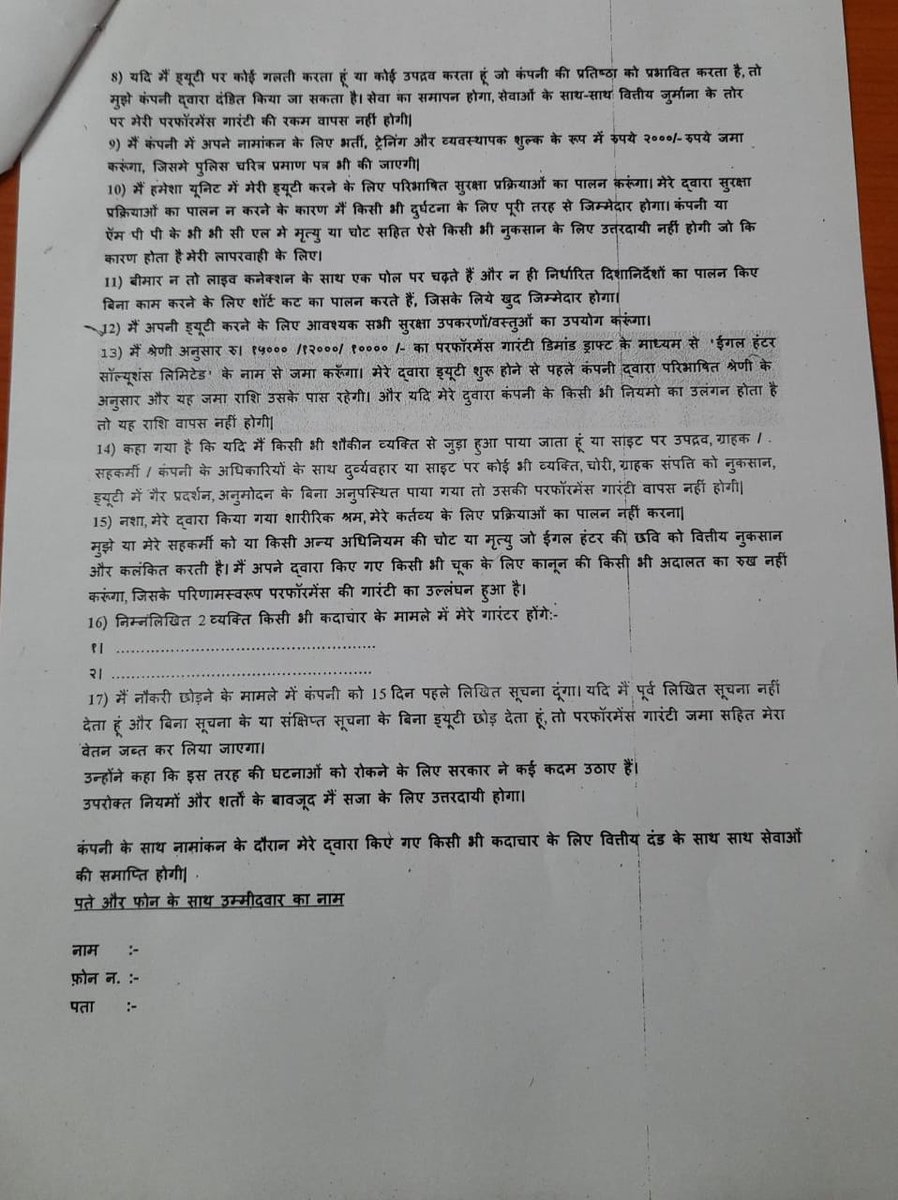 8) यदि मैं ड्यूटी पर कोई गलती करता हूं या कोई उपद्रव करता हूं जो कंपनी की प्रतिष्ठा को प्रभावित करता है, तो
मुझे कंपनी द्वारा दंडित किया जा सकता है। सेवा का समापन होगा, सेवाओं के साथ-साथ वित्तीय जुर्माना के तोर
पर मेरी परफॉरमेंस गारंटी की रकम वापस नहीं होगी|
9) मैं कंपनी में अपने नामांकन के लिए भर्ती, ट्रेनिंग और व्यवस्थापक शुल्क के रूप में रुपये २०००/- रुपये जमा
करूंगा, जिसमे पुलिस चरित्र प्रमाण पत्र भी की जाएगी|
10) मैं हमेशा यूनिट में मेरी ड्यूटी करने के लिए परिभाषित सुरक्षा प्रक्रियाओं का पालन करूंगा। मेरे द्वारा सुरक्षा
प्रक्रियाओं का पालन न करने के कारण मैं किसी भी दुर्घटना के लिए पूरी तरह से जिम्मेदार होगा। कंपनी या
ऍम पी पी के भी भी सी एल मे मृत्यु या चोट सहित ऐसे किसी भी नुकसान के लिए उत्तरदायी नहीं होगी जो कि
कारण होता है मेरी लापरवाही के लिए।
11) बीमार न तो लाइव कनेक्शन के साथ एक पोल पर चढ़ते हैं और न ही निर्धारित दिशानिर्देशों का पालन किए
बिना काम करने के लिए शॉर्ट कट का पालन करते हैं, जिसके लिये खुद जिम्मेदार होगा।
12) मैं अपनी ड्यूटी करने के लिए आवश्यक सभी सुरक्षा उपकरणों/वस्तुओं का उपयोग करूंगा।
13) मैं श्रेणी अनुसार रु। १५००० /१२०००/ १०००० /- का परफॉरमेंस गारंटी डिमांड ड्राफ्ट के माध्यम से 'ईगल हंटर
सॉल्यूशंस लिमिटेड' के नाम से जमा करूँगा। मेरे द्वारा ड्यूटी शुरू होने से पहले कंपनी द्वारा परिभाषित श्रेणी के
अनुसार और यह जमा राशि उसके पास रहेगी। और यदि मेरे दुवारा कंपनी के किसी भी नियमो का उलंगन होता है
तो यह राशि वापस नहीं होगी|
14) कहा गया है कि यदि मैं किसी भी शौकीन व्यक्ति से जुड़ा हुआ पाया जाता हूं या साइट पर उपद्रव, ग्राहक /
सहकर्मी / कंपनी के अधिकारियों के साथ दुर्व्यवहार या साइट पर कोई भी व्यक्ति, चोरी, ग्राहक संपत्ति को नुकसान,
ड्यूटी में गैर प्रदर्शन, अनुमोदन के बिना अनुपस्थित पाया गया तो उसकी परफॉरमेंस गारंटी वापस नहीं होगी|
15) नशा, मेरे द्वारा किया गया शारीरिक श्रम, मेरे कर्तव्य के लिए प्रक्रियाओं का पालन नहीं करना|
मुझे या मेरे सहकर्मी को या किसी अन्य अधिनियम की चोट या मृत्यु जो ईगल हंटर की छवि को वित्तीय नुकसान
और कलंकित करती है। मैं अपने द्वारा किए गए किसी भी चूक के लिए कानून की किसी भी अदालत का रुख नहीं
करूंगा, जिसके परिणामस्वरूप परफॉरमेंस की गारंटी का उल्लंघन हुआ है।
16) निम्नंलिखित 2 व्यक्ति किसी भी कदाचार के मामले में मेरे गारंटर होंगे:-
१। ....................................................
२। ....................................................
17) मैं नौकरी छोड़ने के मामले में कंपनी को 15 दिन पहले लिखित सूचना दूंगा। यदि मैं पूर्व लिखित सूचना नहीं
देता हूं और बिना सूचना के या संक्षिप्त सूचना के बिना ड्यूटी छोड़ देता हूं, तो परफॉरमेंस गारंटी जमा सहित मेरा
वेतन जब्त कर लिया जाएगा।
उन्होंने कहा कि इस तरह की घटनाओं को रोकने के लिए सरकार ने कई कदम उठाए हैं।
उपरोक्त नियमों और शर्तों के बावजूद मैं सजा के लिए उत्तरदायी होगा।
कंपनी के साथ नामांकन के दौरान मेरे द्वारा किए गए किसी भी कदाचार के लिए वित्तीय दंड के साथ साथ सेवाओं
की समाप्ति होगी|
पते और फोन के साथ उम्मीदवार का नाम
नाम :-
फ़ोन न. :-
पता :-